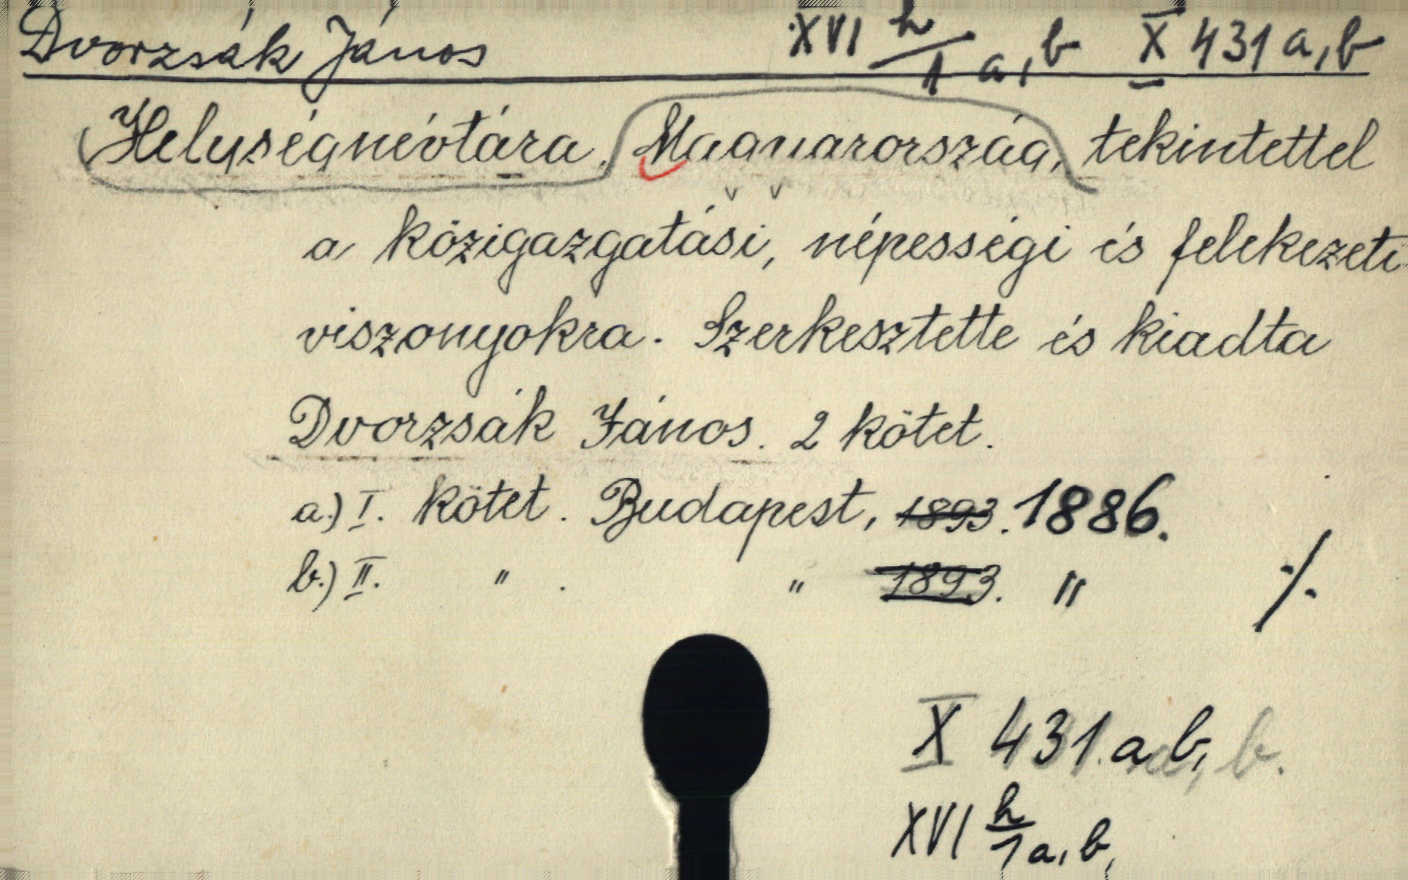 Dvorzsák János XVI h/1 a, b X 431 a, b
Helységnévtára. Magyarország, tekintettel
a közigazgatási, népességi és felekezeti
viszonyokra. Szerkesztette és kiadta
Dvorzsák János. 2 kötet.
a.) I. kötet. Budapest, 1893. 1886.
b.) II. " . " 1893. "
X 431. a b, b.
XVI h/1 a, b,